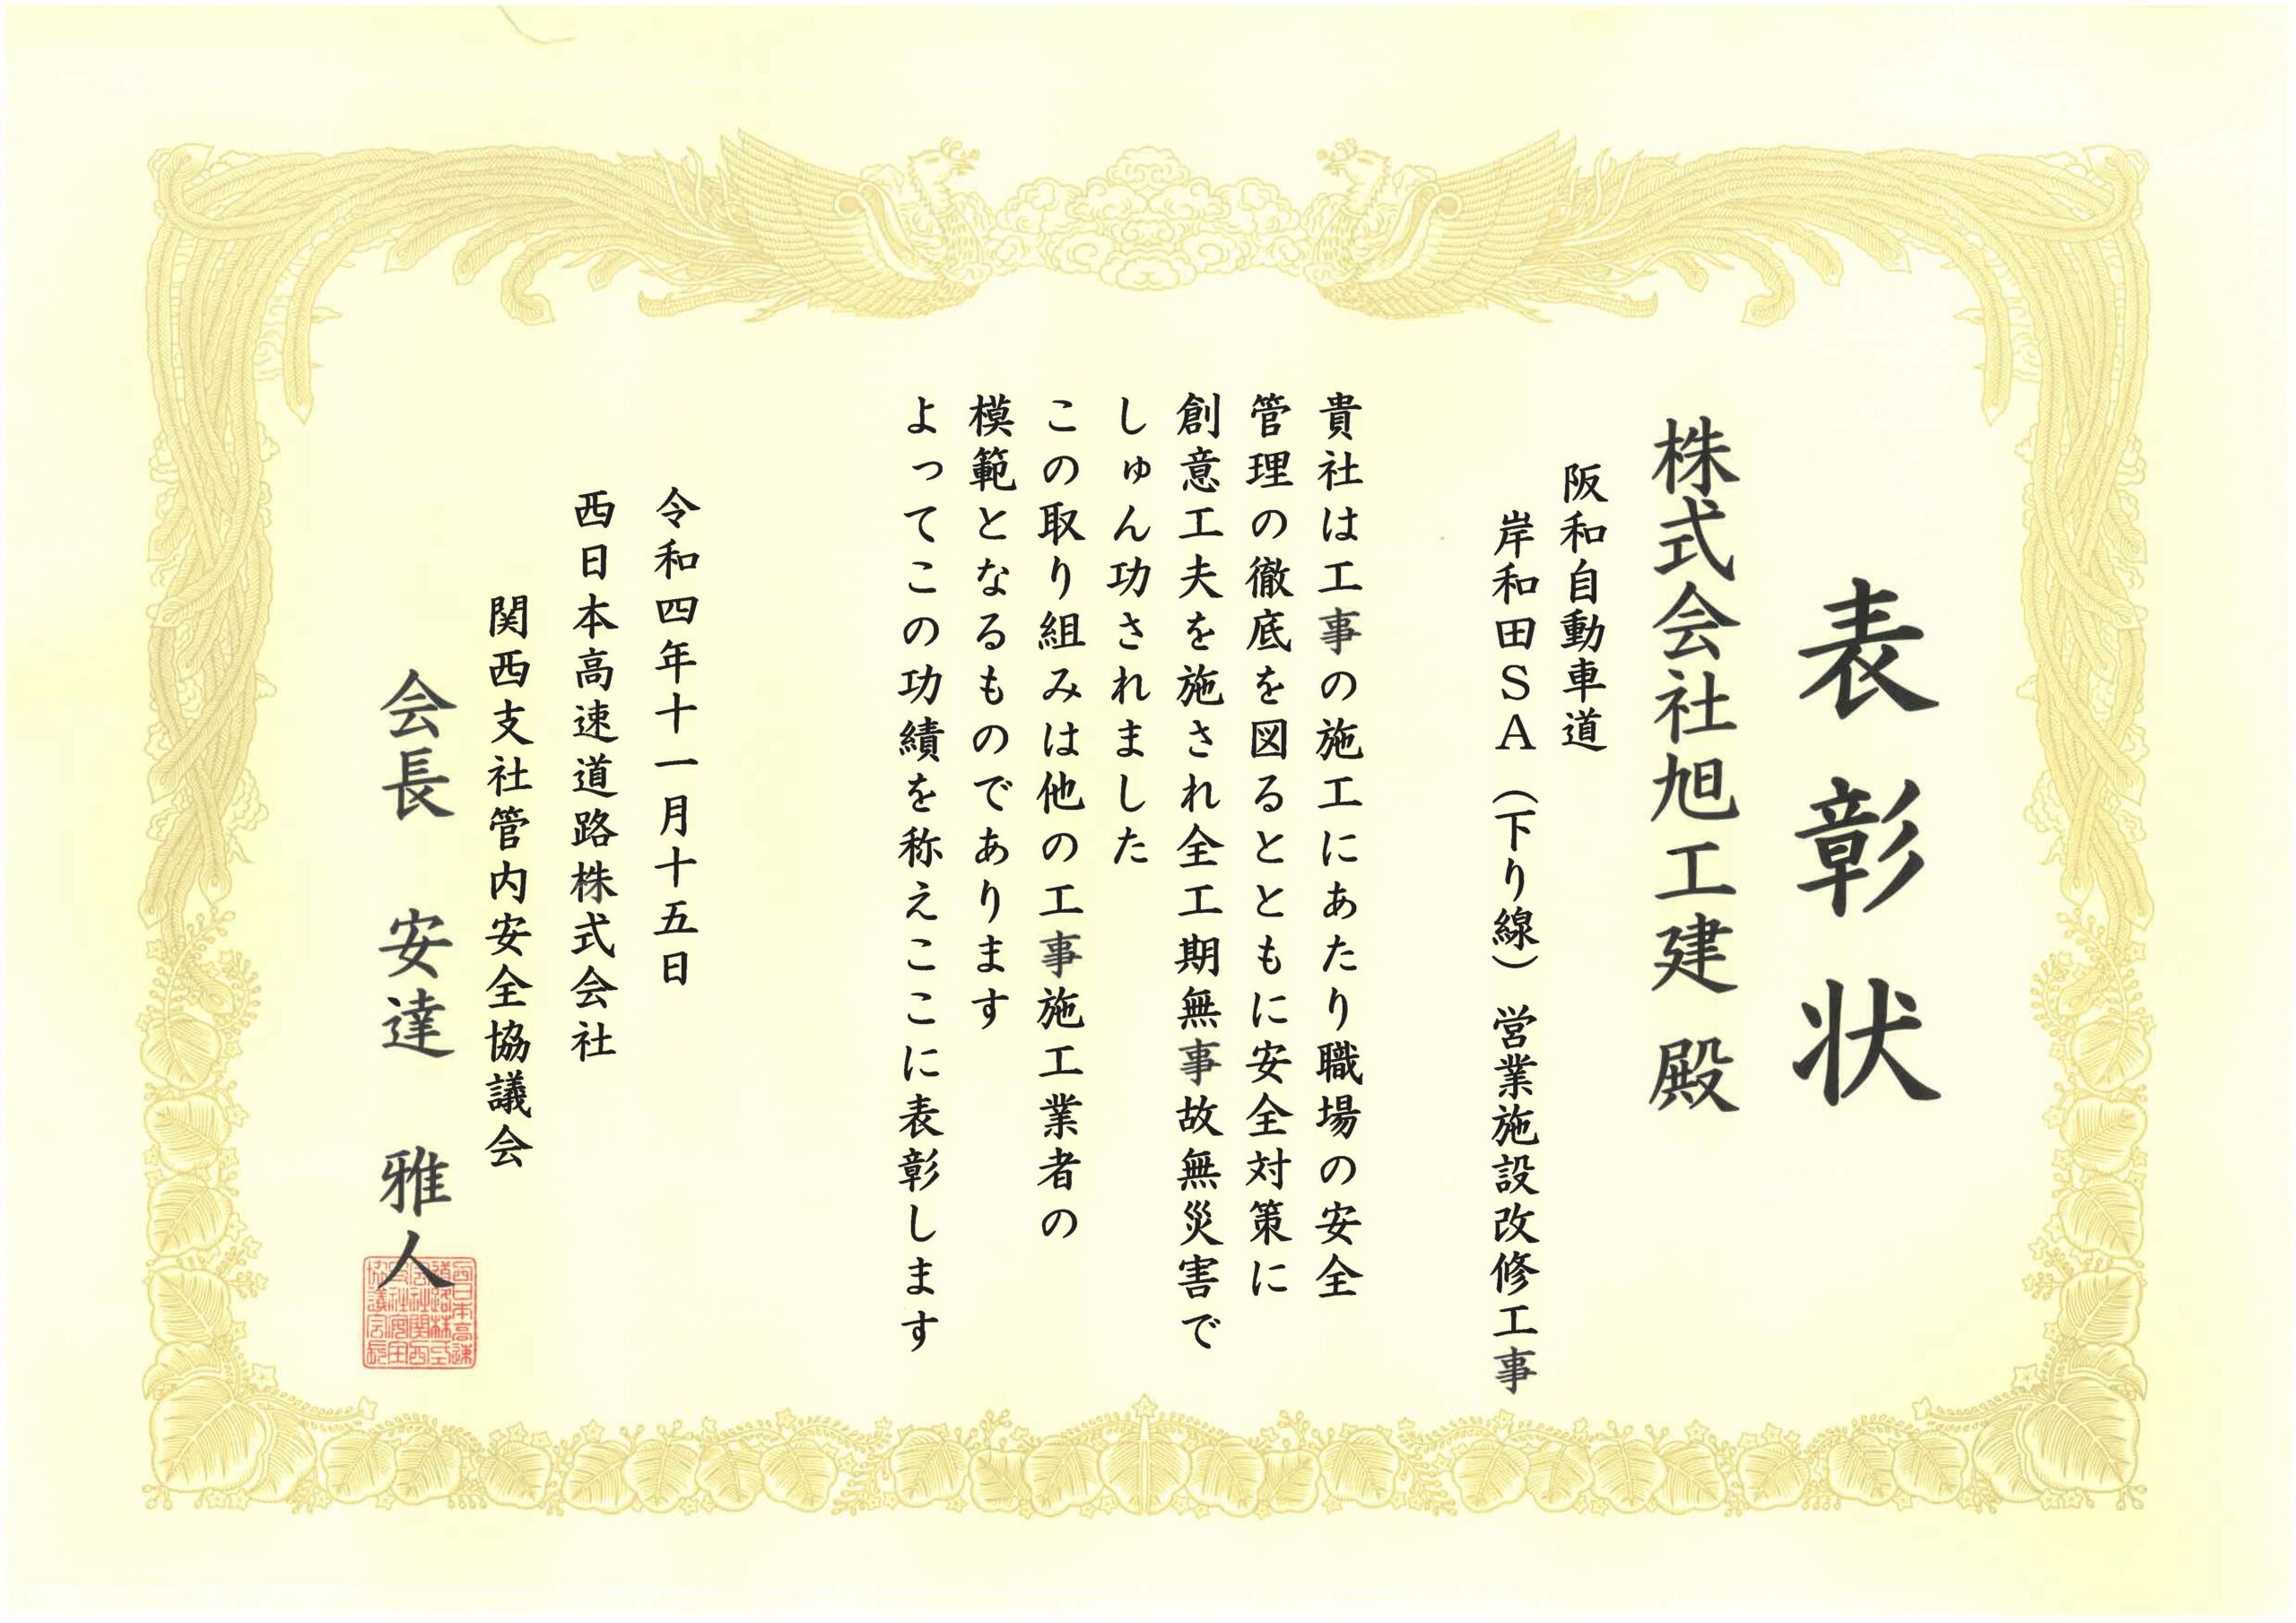 表彰状
株式会社旭工建 殿
阪和自動車道
岸和田SA（下り線）営業施設改修工事
貴社は工事の施工にあたり職場の安全
管理の徹底を図るとともに安全対策に
創意工夫を施され全工期無事故無災害で
しゅん功されました
この取り組みは他の工事施工業者の
模範となるものであります
よってこの功績を称えここに表彰します
令和四年十一月十五日
西日本高速道路株式会社
関西支社管内安全協議会
会長 安達 雅人
西日本高速
道路株式
会社関西
支社管内
安全
協議会長